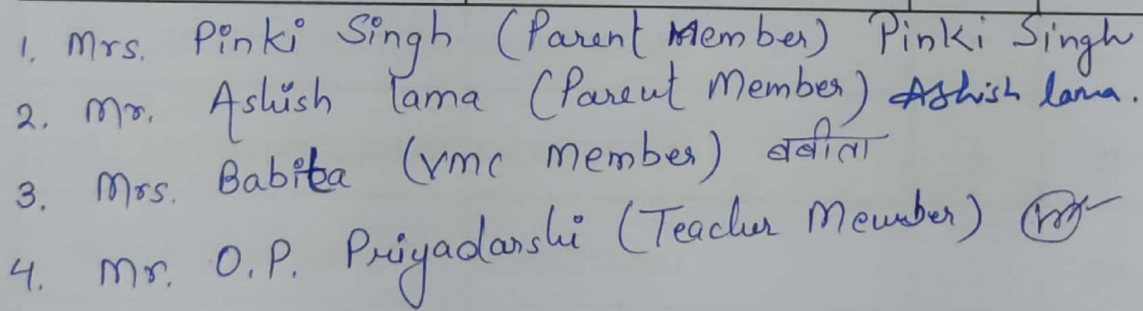 1. Mrs. Pinki Singh (Parent Member) Pinki Singh
2. Mr. Ashish Lama (Parent Member) Ashish lama.
3. Mrs. Babita (VMC Member) बबीता
4. Mr. O.P. Priyadarshi (Teacher Member)